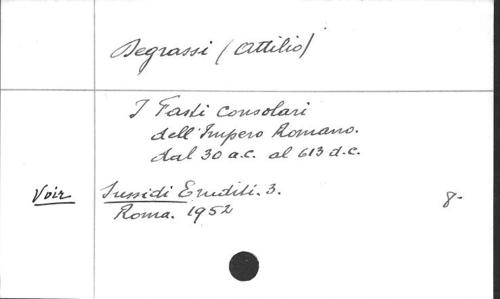 Degrassi (Attilio)
I Fasti consolari
dell'Impero Romano.
dal 30 a.c. al 613 d.c.
Voir Sussidi Eruditi. 3. 8-
Roma. 1952